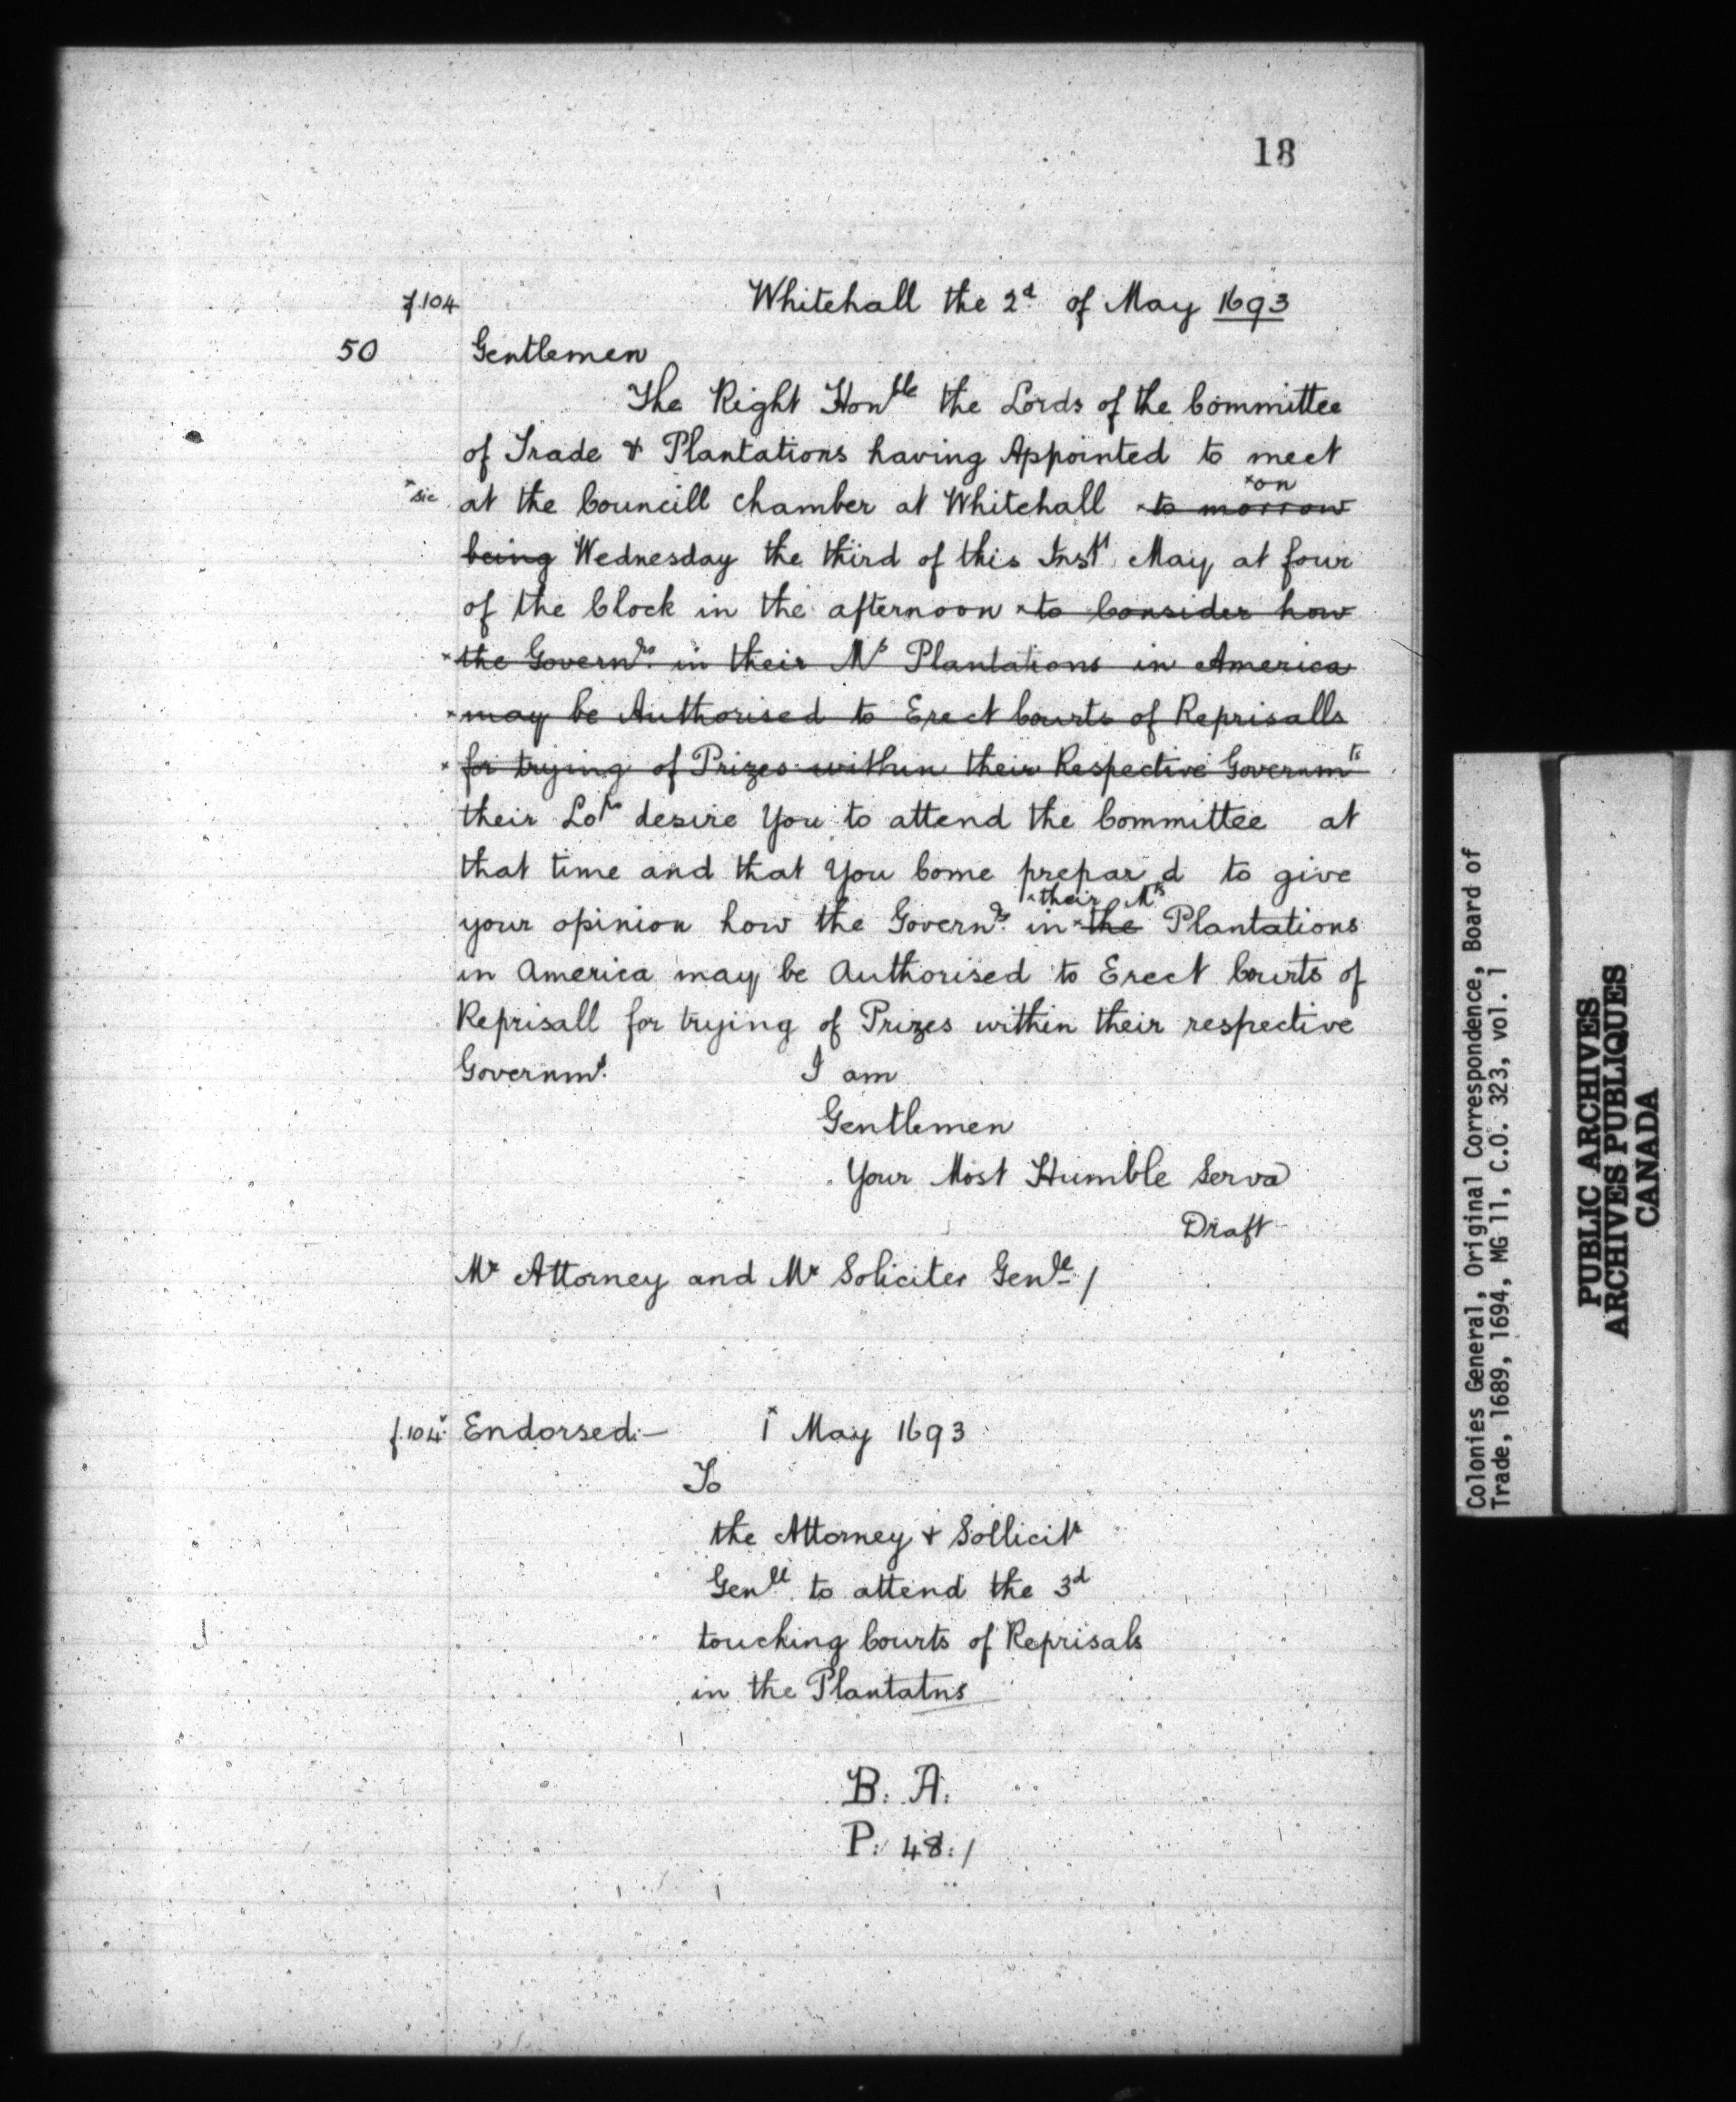 18
f.104 Whitehall the 2d of May 1693
50 Gentlemen
The Right Honble the Lords of the Committee
of Trade & Plantations having Appointed to meet
xon
xsic at the Councill Chamber at Whitehall xto morrow
being Wednesday the third of this Instt May at four
of the Clock in the afternoon xto Consider how
xthe Governrs in their Ms Plantations in America
xmay be Authorised to Erect Courts of Reprisalls
xfor trying of Prizes within their Respective Governmts
their Lops desire You to attend the Committee at
that time and that You Come prepar'd to give
xtheir Mts
your opinion how the Governrs in xthe Plantations
in America may be Authorised to Erect Courts of
Reprisall for trying of Prizes within their respective
Governmts. I am
Gentlemen
Your Most Humble Serva
Draft
Mr Attorney and Mr Soliciter Genll /
f.104v Endorsed:— 1x May 1693
To
the Attorney & Sollicitr
Genll to attend the 3d
touching Courts of Reprisals
in the Plantatns
B. A:
P: 48:/
Colonies General, Original Correspondence, Board of
Trade, 1689, 1694, MG 11, C.O. 323, vol. 1
PUBLIC ARCHIVES
ARCHIVES PUBLIQUES
CANADA